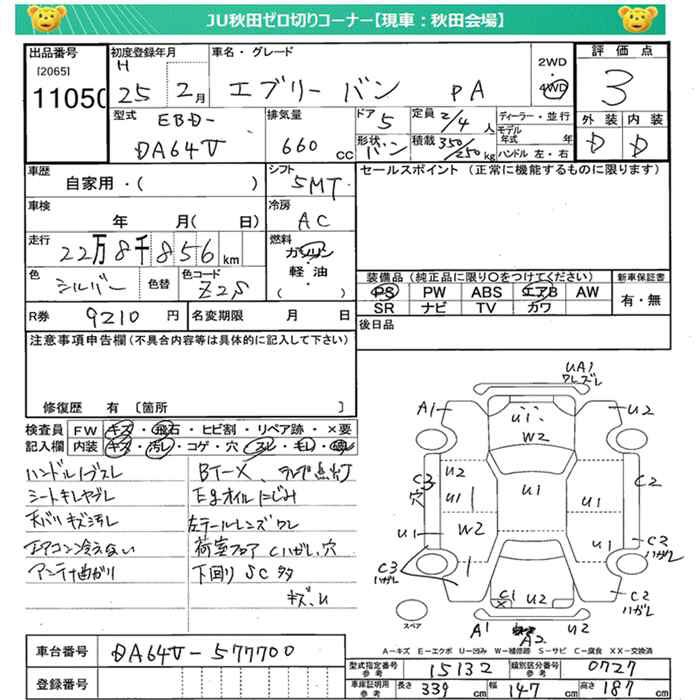 JU秋田ゼロ切りコーナー【現車:秋田会場】
出品番号
[2065]
11050
初度登録年月
H
25 2月
車名・グレード
エブリー バン PA
2WD
4WD
評価点
3
外装 内装
D D
型式
EBD-
DA64V
排気量
660 cc
ドア 5
形状 バン
定員 2/4 人
積載 350/250 kg
ディーラー・並行
モデル年式 年
ハンドル 左・右
車歴
自家用・( )
シフト
5MT
車検
年 月( 日)
冷房
AC
走行
22万8千856 km
燃料
ガソリン
・軽油・
( )
色
シルバー
色替
色コード
Z2S
R券 9210 円
名変期限 月 日
セールスポイント (正常に機能するものに限ります)
装備品 (純正品に限り○をつけてください)
PS PW ABS エアB AW
SR ナビ TV カワ
新車保証書
有・無
後日品
注意事項申告欄(不具合内容等は具体的に記入して下さい)
修復歴 有 〔箇所 〕
検査員記入欄
FW キズ・飛石・ヒビ割・リペア跡・×要
内装 キズ・汚レ・コゲ・穴・スレ・キレ
ハンドル
シートキレヤブレ
天バリキズ汚レ
エアコン冷えない
アンテナ曲がり
BT-X
点灯
Egオイルにじみ
左テールレンズワレ
荷室フロア Cハガレ、穴
下回り SC 多
キズ、U
UA1
ワレズレ
A1 U2
W2
C3 穴
U2
U1
U1
U1
C2
U1
W2
U1
C2 ハガレ
C3 ハガレ
C2 ハガレ
C1 U2
A1 A2 U2
スペア
A-キズ E-エクボ U-凹み W-補修跡 S-サビ C-腐食 XX-交換済
車台番号 DA64V-577700
登録番号
型式指定番号 参考 15132
類別区分番号 参考 0727
車庫証明用 参考
長さ 339 cm
幅 147 cm
高さ 187 cm